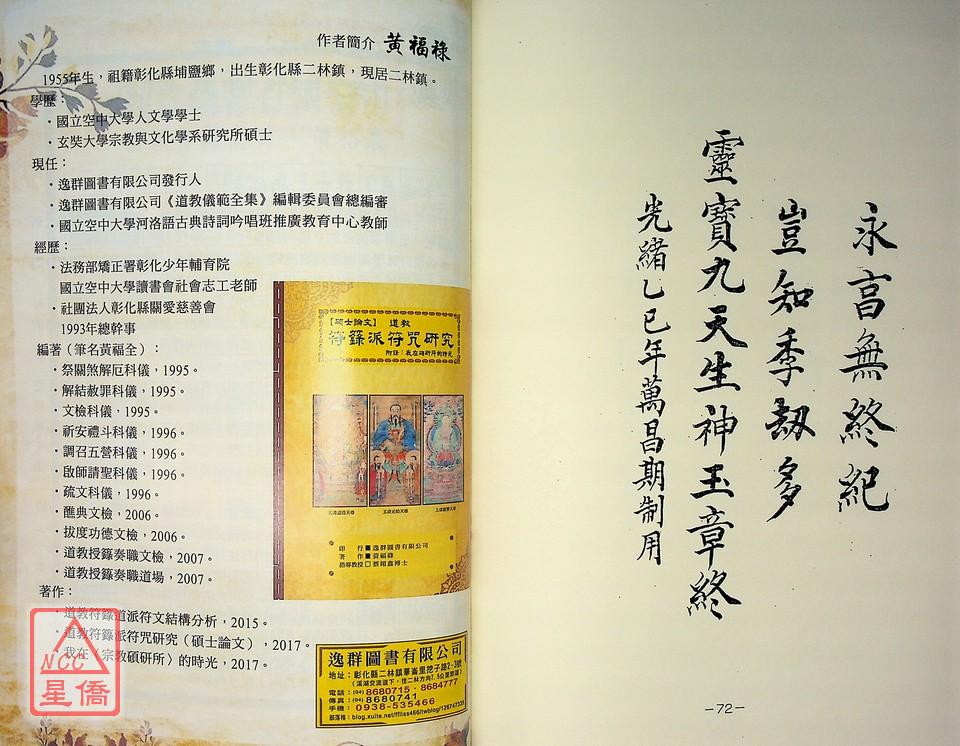 作者簡介 黃福祿
1955年生，祖籍彰化縣埔鹽鄉，出生彰化縣二林鎮，現居二林鎮。
學歷：
・國立空中大學人文學學士
・玄奘大學宗教與文化學系研究所碩士
現任：
・逸群圖書有限公司發行人
・逸群圖書有限公司《道教儀範全集》編輯委員會總編審
・國立空中大學河洛語古典詩詞吟唱班推廣教育中心教師
經歷：
・法務部矯正署彰化少年輔育院
國立空中大學讀書會社會志工老師
・社團法人彰化縣關愛慈善會
1993年總幹事
編著（筆名黃福全）：
・祭關煞解厄科儀，1995。
・解結赦罪科儀，1995。
・文檢科儀，1995。
・祈安禮斗科儀，1996。
・調召五營科儀，1996。
・啟師請聖科儀，1996。
・疏文科儀，1996。
・醮典文檢，2006。
・拔度功德文檢，2006。
・道教授籙奏職文檢，2007。
・道教授籙奏職道場，2007。
著作：
・道教符籙道派符文結構分析，2015。
・道教符籙派符咒研究（碩士論文），2017。
・我在〈宗教碩研所〉的時光，2017。
【碩士論文】 道教
符籙派符咒研究
附錄：我在碩研所的時光
玉清元始天尊
印 行■逸群圖書有限公司
著 作■黃福祿
指導教授□蔡翊鑫博士
逸群圖書有限公司
地址：彰化縣二林鎮華崙里挖子路2-3號
（溪湖交流道下，往二林方向7.5公里即達）
電話：(04) 8680715．8684777
傳真：(04) 8680741
手機： 0938-535466
部落格：blog.xuite.net/ffliss466/twblog/126747335
NCC
星僑
永享無終紀
豈知季劫多
靈寶九天生神玉章終
光緒乙巳年萬昌期制用
–72–